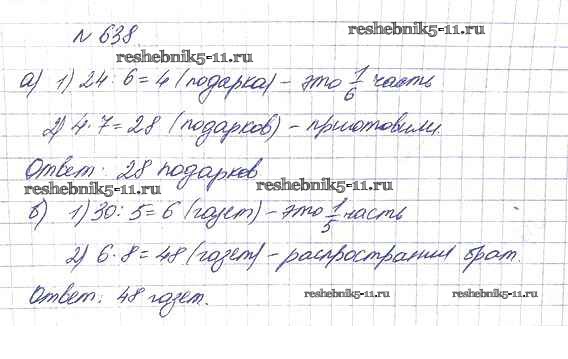 № 638.
reshebnik5-11.ru
reshebnik5-11.ru
а) 1) 24 : 6 = 4 (подарка) – это 1/6 часть
2) 4 · 7 = 28 (подарков) – приготовили.
Ответ: 28 подарков
reshebnik5-11.ru reshebnik5-11.ru
б) 1) 30 : 5 = 6 (газет) – это 1/5 часть
2) 6 · 8 = 48 (газет) – распространил брат.
Ответ: 48 газет.
reshebnik5-11.ru reshebnik5-11.ru